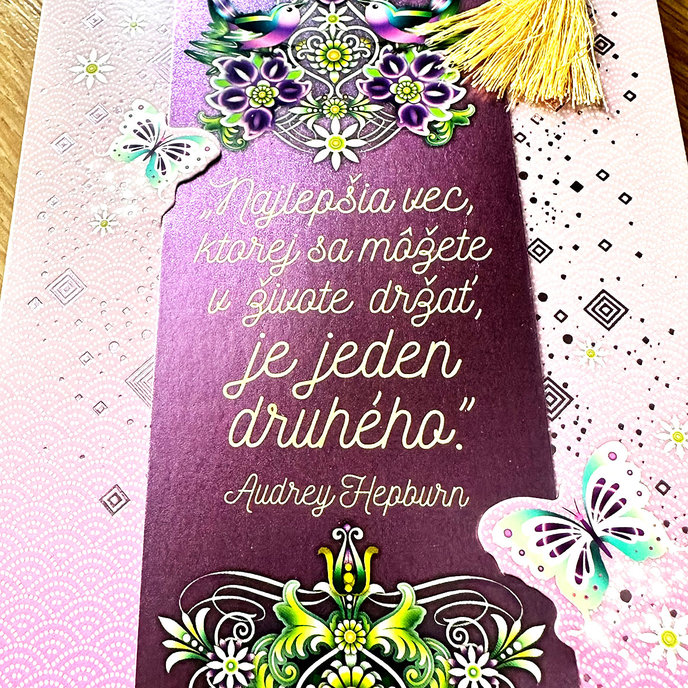 „Najlepšia vec,
ktorej sa môžete
v živote držať,
je jeden
druhého.”
Audrey Hepburn